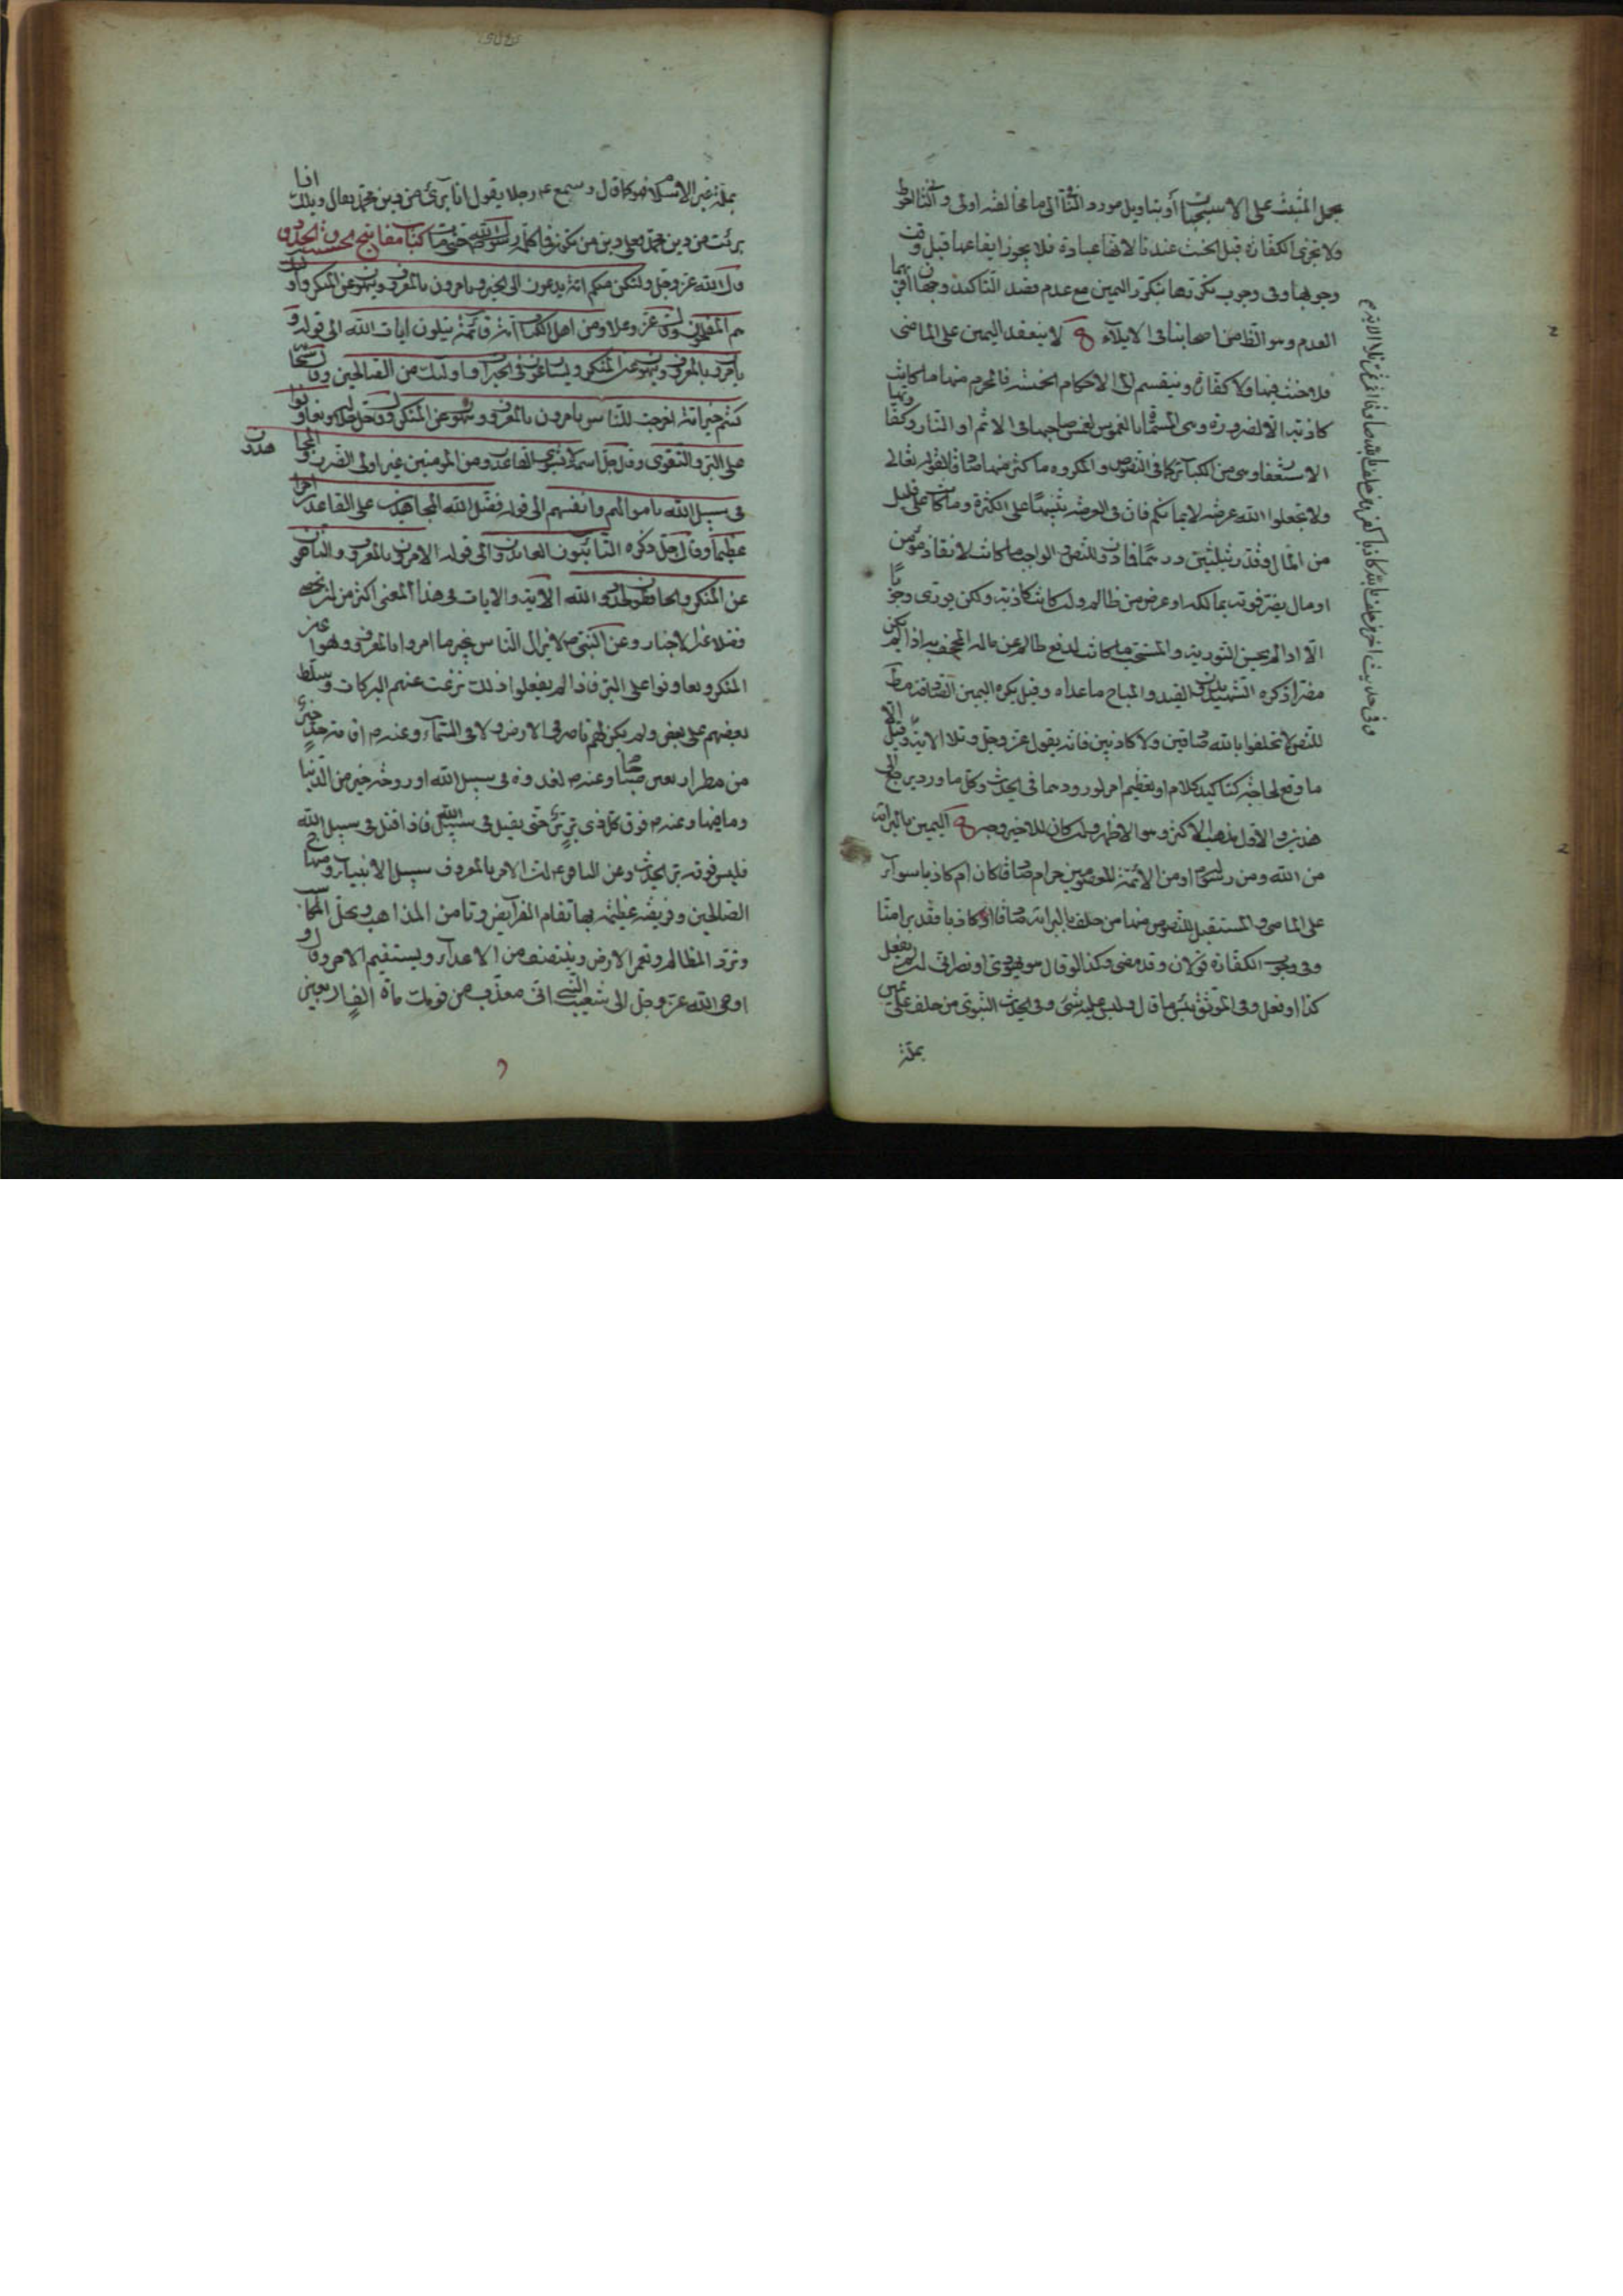 بحمل المثبتة على الاستحباب أو بتاويل مورد الثقة الى ما مخالفه اولى والثالث احوط
ولا تجزى الكفارة قبل الحنث عندنا لانها عبادة فلا يجوز ايقاعها قبل وقت
وجوبها وفى وجوب تكررها بتكرر اليمين مع عدم قصد التاكيد وجهان اقربهما
العدم وهو الظاهر من اصحابنا فى الايلاء لا ينعقد اليمين على الماضى
فلا حنث فيها ولا كفارة وينقسم الى الاحكام الخمسة فالمحرم منها ما كانت
كاذبة الا لضرورة وهى المسماة بالغموس لغمس صاحبها فى الاثم او النار وكفارتها
الاستغفار وهى من الكبائر كما فى النصوص والمكروه ما كثر منها صادقا لقوله تعالى
ولا تجعلوا الله عرضة لايمانكم فان فى العرضة تنبيها على الكثرة وما كان على قليل
من المال وقدر بثلثين درهما فما دون للنص والواجب ما كانت لانقاذ مؤمن
او مال يضر فوته بمالكه او عرض من ظالم وان كانت كاذبة ولكن يورى وجوبا
الا اذا لم يحسن التورية والمستحب ما كانت لدفع ظالم عن ماله المجحف به اذا لم يكن
مضرا ذكره الشهيد بدون القيد والمباح ما عداه وقيل يكره اليمين الصادقة مطلقا
للنص لا تحلفوا بالله صادقين ولا كاذبين فانه يقول عز وجل وتلا الاية وقيل الا
ما وقع لحاجة كتاكيد كلام او تعظيم امر لورودهما فى الحديث وكل ما ورد يرجع الى
هذين والاول مذهب الاكثر وهو الاظهر وان كان للاخير وجه اليمين بالبراءة
من الله ومن رسوله او من الائمة المعصومين حرام صادقا كان ام كاذبا سواء
على الماضى والمستقبل للنصوص منها من حلف بالبراءة منا صادقا او كاذبا فقد برا منا
وفى وجوب الكفارة قولان وقد مضى وكذا لو قال هو يهودى او نصرانى ان لم يفعل
كذا او فعل وفى الموثق بئس ما قال وليس عليه شىء وفى الحديث النبوى من حلف على يمين
بملة
بملة غير الاسلام فهو كما قال وسمع رجلا يقول انا برئ من دين محمد فقال ويلك اذا
برئت من دين محمد فعلى دين من تكون فما كلمه رسول الله حتى مات كتاب مفاتيح الحسبة والحدود
قال الله عز وجل ولتكن منكم امة يدعون الى الخير ويامرون بالمعروف وينهون عن المنكر واولئك
هم المفلحون وقال عز وعلا ومن اهل الكتاب امة قائمة يتلون ايات الله الى قوله و
يامرون بالمعروف وينهون عن المنكر ويسارعون فى الخيرات واولئك من الصالحين وقال سبحانه
كنتم خير امة اخرجت للناس يامرون بالمعروف وتنهون عن المنكر وقال جل جلاله وتعاونوا
على البر والتقوى وقال جل اسمه لا يستوى القاعدون من المؤمنين غير اولى الضرر والمجاهدون
فى سبيل الله باموالهم وانفسهم الى قوله فضل الله المجاهدين على القاعدين اجرا
عظيما وقال جل ذكره التائبون العابدون الى قوله الامرون بالمعروف والناهون
عن المنكر والحافظون لحدود الله الاية والايات فى هذا المعنى اكثر من ان تحصى
فضلا عن الاخبار وعن النبى ص لا يزال الناس بخير ما امروا بالمعروف ونهوا عن
المنكر وتعاونوا على البر فاذا لم يفعلوا ذلك نزعت عنهم البركات وسلط
بعضهم على بعض ولم يكن لهم ناصر فى الارض ولا فى السماء وعنه ص اقامة حد خير
من مطر اربعين صباحا وعنه ص لغدوة فى سبيل الله او روحة خير من الدنيا
وما فيها وعنه ص فوق كل ذى بر بر حتى يقتل فى سبيل الله فاذا قتل فى سبيل الله
فليس فوقه بر الحديث وعن الباقر ع ان الامر بالمعروف سبيل الانبياء ومنهاج
الصالحين وفريضة عظيمة بها تقام الفرايض وتامن المذاهب وتحل المكاسب
وترد المظالم وتعمر الارض وينتصف من الاعداء ويستقيم الامر وقال
اوحى الله عز وجل الى شعيب النبى انى معذب من قومك ماة الف اربعين